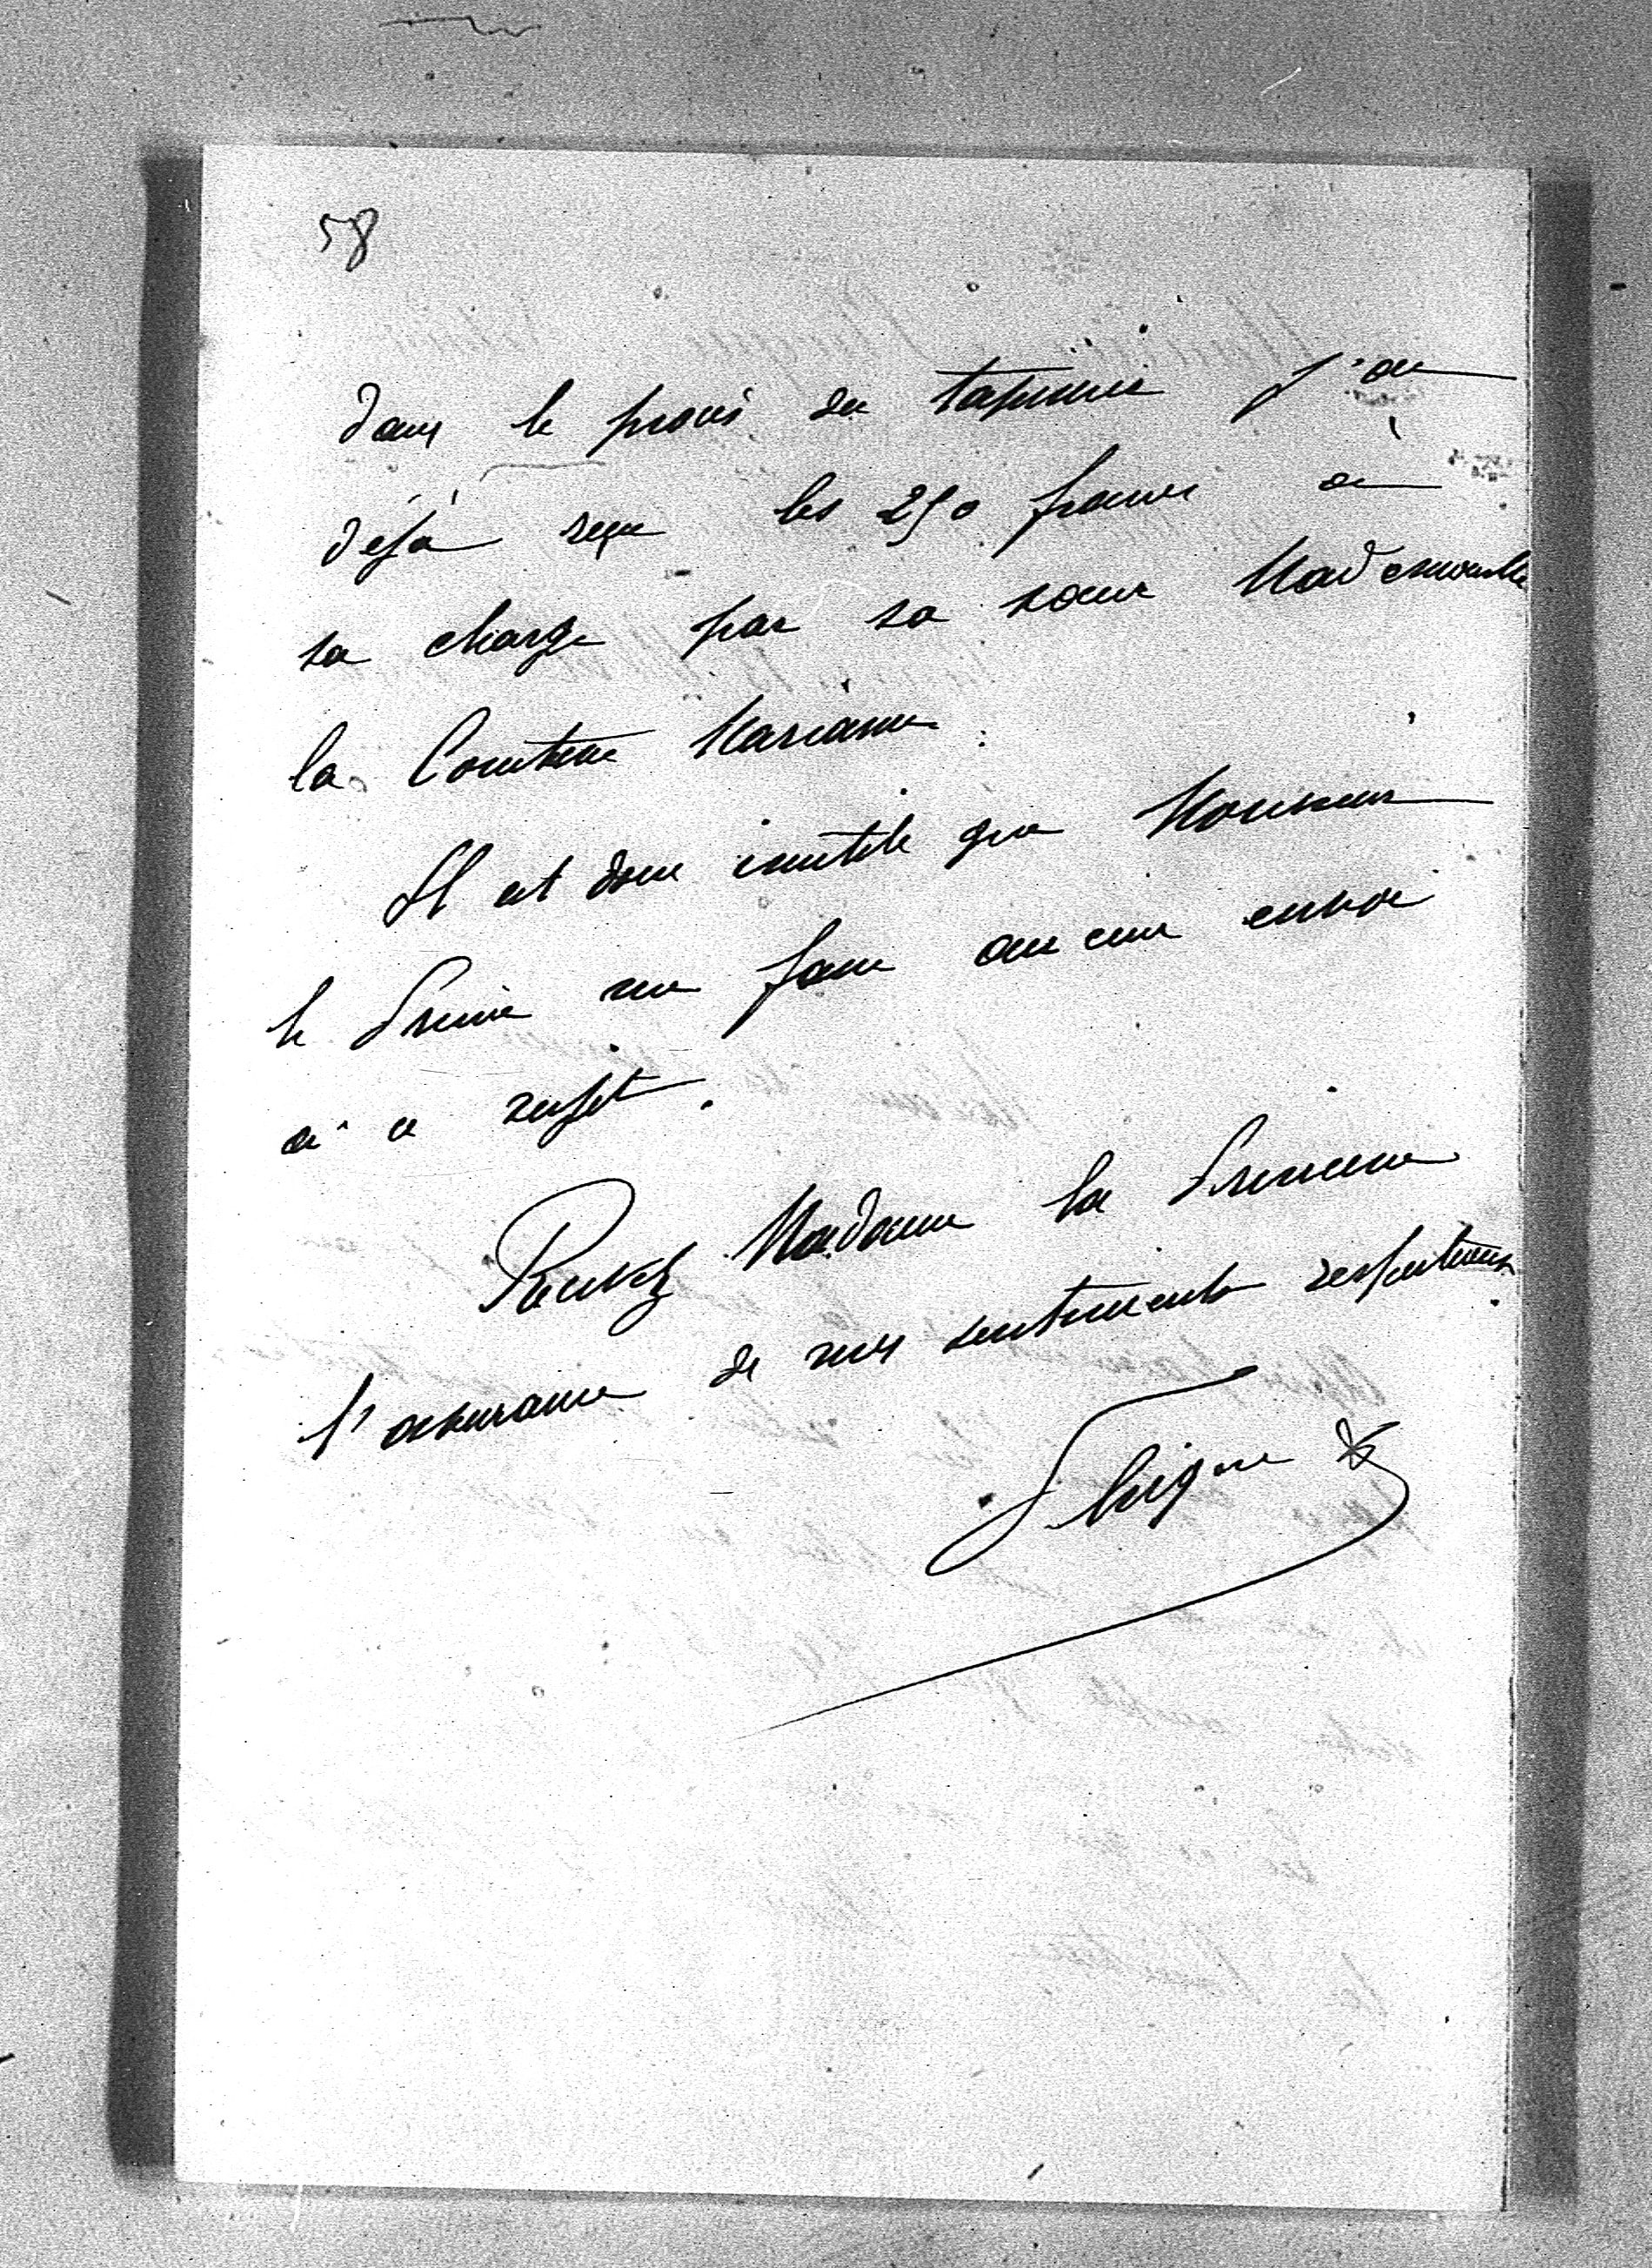 58
dans le procès du tapissier j'ai
déjà reçu les 250 francs à
sa charge par sa sœur Mademoiselle
la Comtesse Marianne.
Il est donc inutile que Monsieur
le Prince me fasse aucun envoi
à ce sujet.
Recevez Madame la Princesse
l'assurance de mes sentiments respectueux.